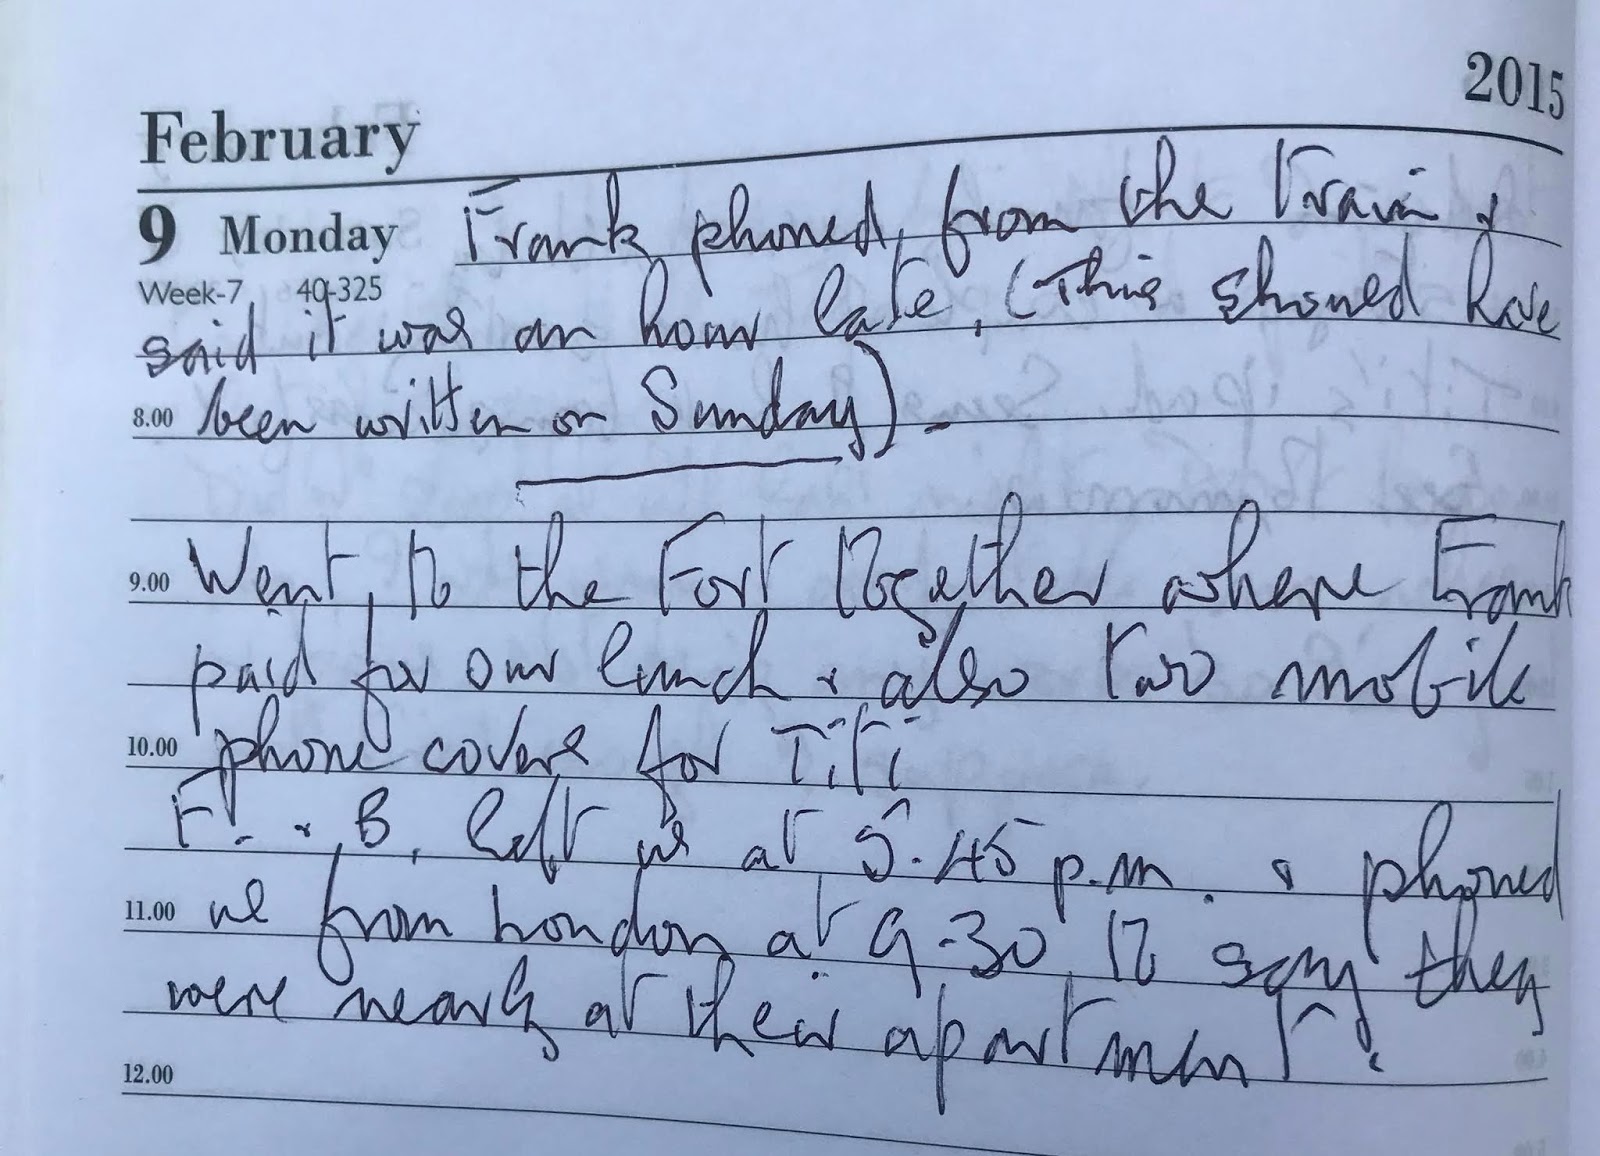 2015
February
9 Monday Frank phoned, from the train &
Week-7 40-325
said it was an hour late, (This shoned have
8.00 been written on Sunday) -
9.00 Went to the Fort together where Frank
paid for our lunch & also two mobile
10.00 phone covers for Titi
F. & B. left us at 5.45 p.m. & phoned
11.00 us from London at 9-30 to say they
were nearly at their apartment.
12.00